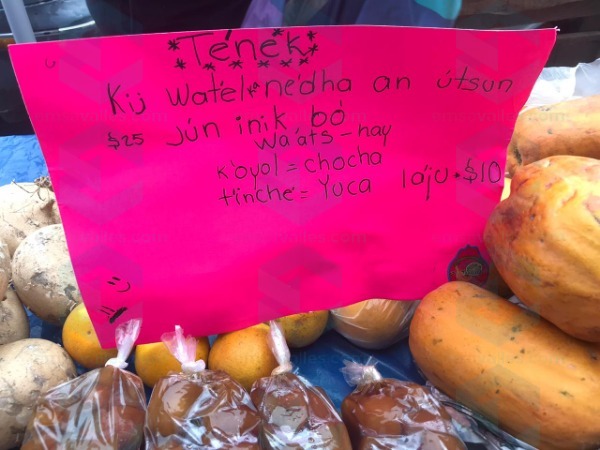 *Ténék*
Kij Wat'el ta ne'dha an útsun
$25 jún inik bó
wa'ats - hay
k'oyol = chocha
tinche = Yuca laju * $10